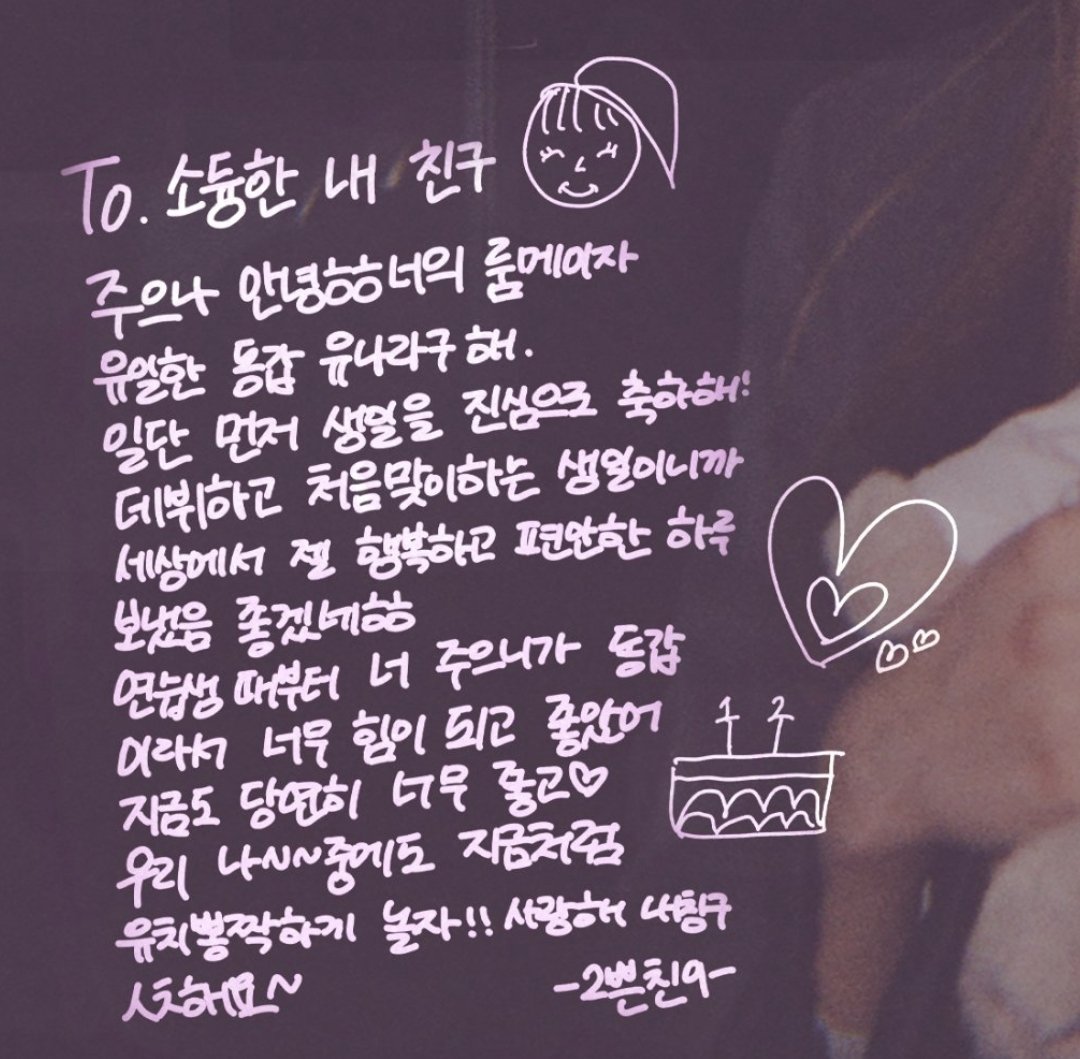 To. 소듕한 내 친구
주으나 안녕ㅎㅎ너의 룸메이자
유일한 동갑 유나라구 해.
일단 먼저 생일을 진심으로 축하해!
데뷔하고 처음맞이하는 생일이니까
세상에서 젤 행복하고 편안한 하루
보냈음 좋겠네ㅎㅎ
연습생 때부터 너 주으니가 동갑
이라서 너무 힘이 되고 좋았어
지금도 당연히 너무 좋고♡
우리 나~~중에도 지금처럼
유치뽕짝하게 놀자!! 사랑해 내칭구
-2쁜친9-